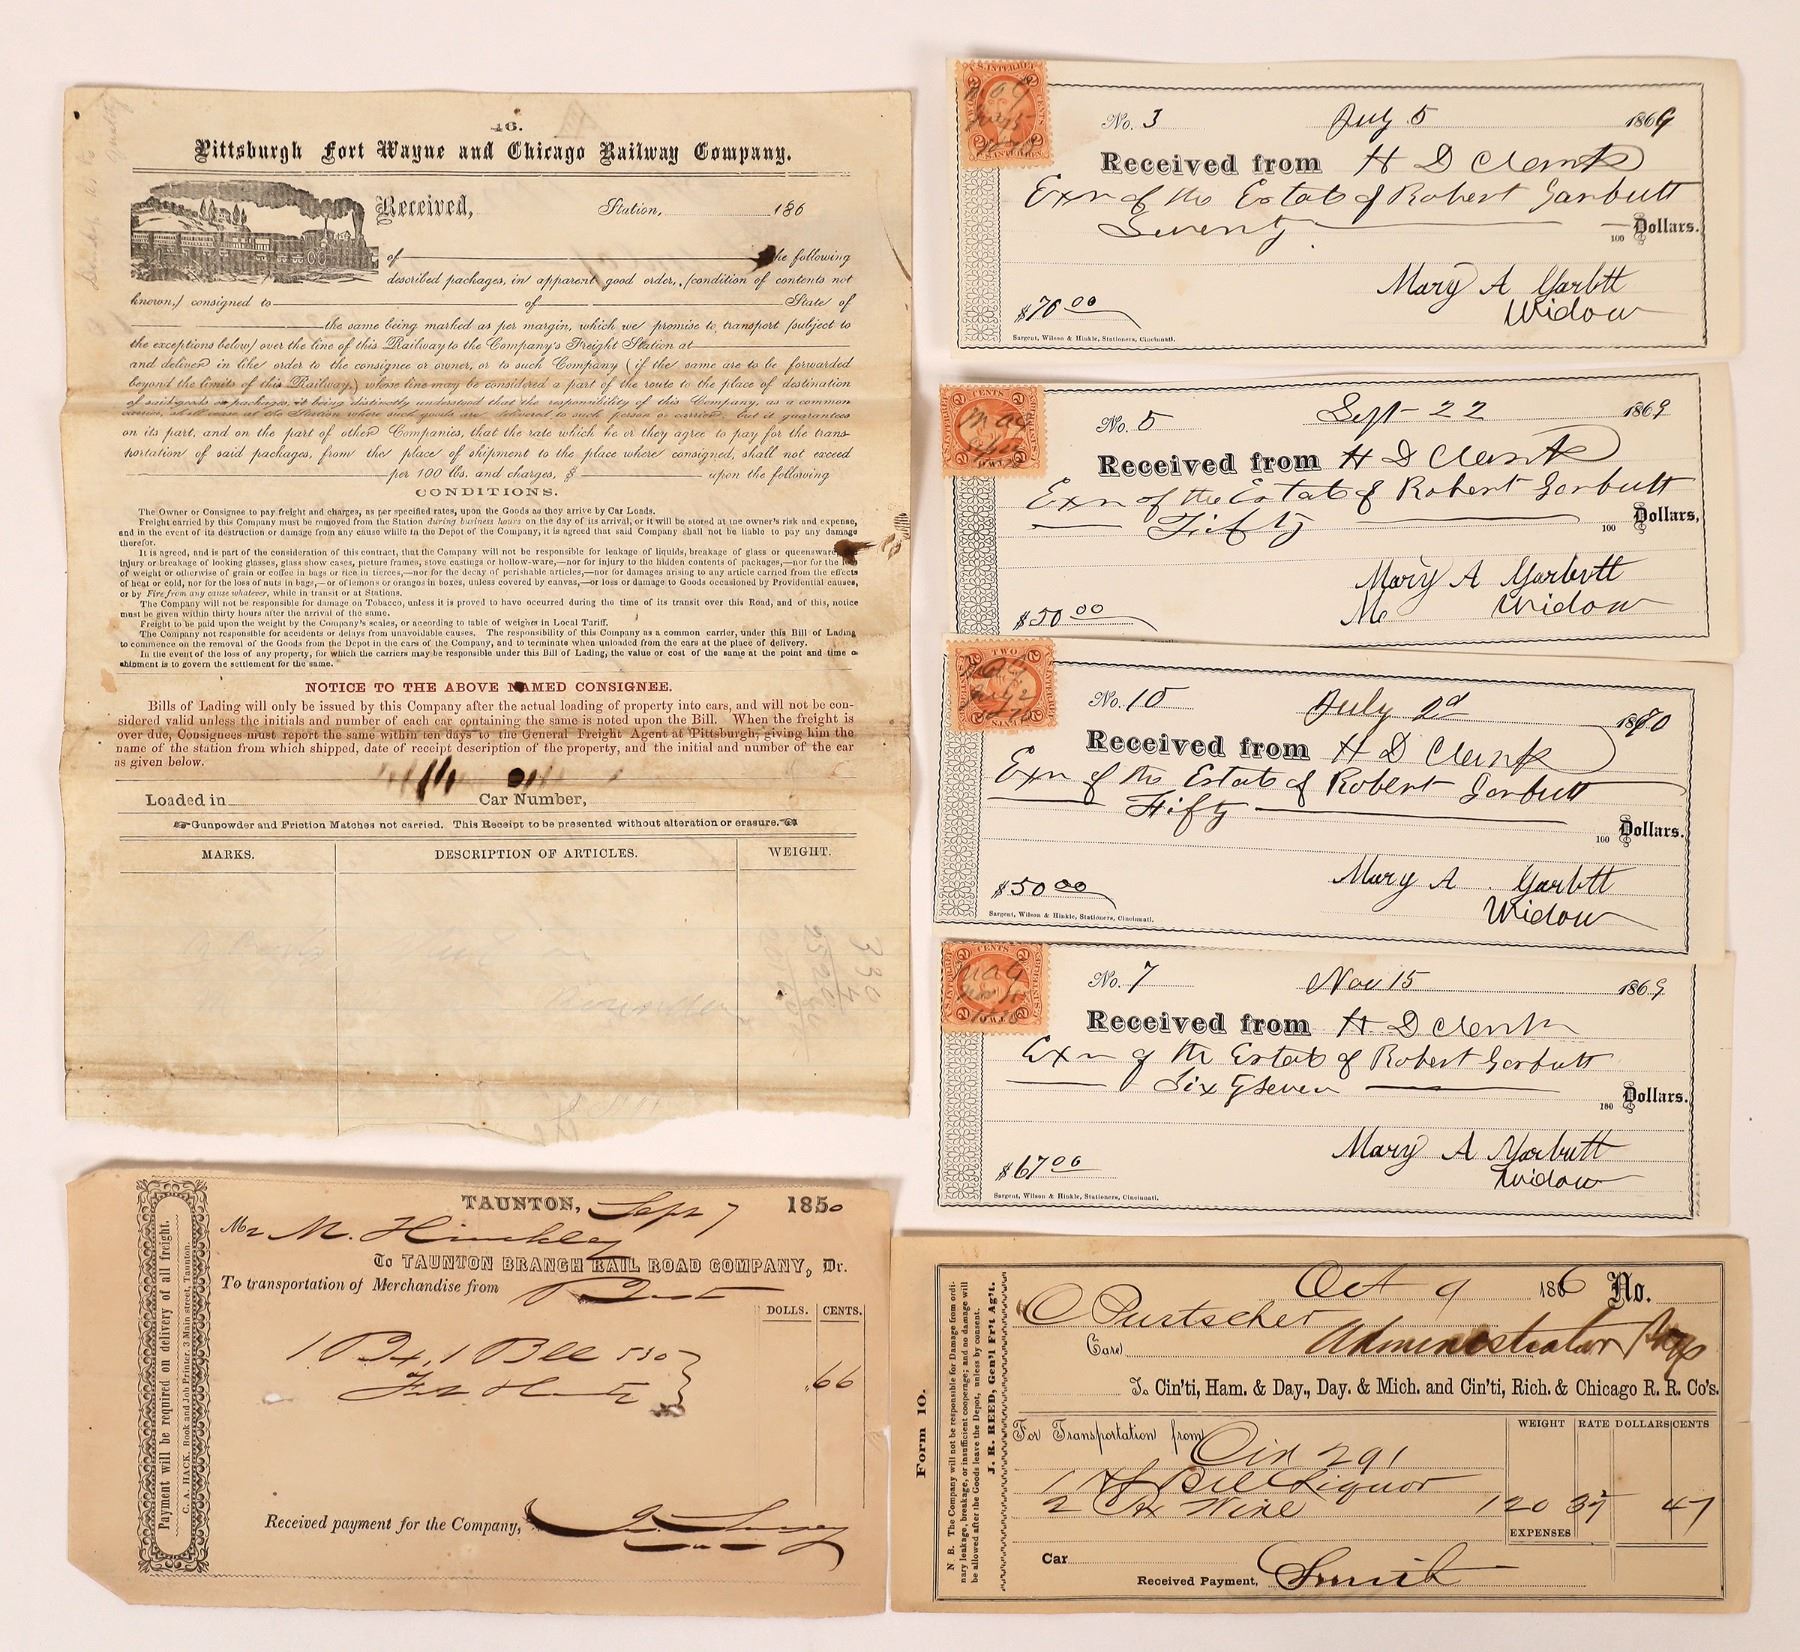 46.
Pittsburgh Fort Wayne and Chicago Railway Company.
Received, Station, 186
of the following
described packages, in apparent good order, (condition of contents not
known,) consigned to of State of
the same being marked as per margin, which we promise to transport (subject to
the exceptions below) over the line of this Railway to the Company's Freight Station at
and deliver in like order to the consignee or owner, or to such Company (if the same are to be forwarded
beyond the limits of this Railway,) whose line may be considered a part of the route to the place of destination
of said goods or packages, it being distinctly understood that the responsibility of this Company, as a common
carrier, shall cease at the Station where such goods are delivered to such person or carrier, but it guarantees
on its part, and on the part of other Companies, that the rate which he or they agree to pay for the trans-
portation of said packages, from the place of shipment to the place where consigned, shall not exceed
per 100 lbs. and charges, $ upon the following
CONDITIONS.
The Owner or Consignee to pay freight and charges, as per specified rates, upon the Goods as they arrive by Car Loads.
Freight carried by this Company must be removed from the Station during business hours on the day of its arrival, or it will be stored at the owner's risk and expense,
and in the event of its destruction or damage from any cause while in the Depot of the Company, it is agreed that said Company shall not be liable to pay any damage
therefor.
It is agreed, and is part of the consideration of this contract, that the Company will not be responsible for leakage of liquids, breakage of glass or queensware,
injury or breakage of looking glasses, glass show cases, picture frames, stove castings or hollow-ware,—nor for injury to the hidden contents of packages,—nor for the
of weight or otherwise of grain or coffee in bags or rice in tierces,—nor for the decay of perishable articles,—nor for damages arising to any article carried from the effects
of heat or cold, nor for the loss of nuts in bags,—or of lemons or oranges in boxes, unless covered by canvas,—or loss or damage to Goods occasioned by Providential causes,
or by Fire from any cause whatever, while in transit or at Stations.
The Company will not be responsible for damage on Tobacco, unless it is proved to have occurred during the time of its transit over this Road, and of this, notice
must be given within thirty hours after the arrival of the same.
Freight to be paid upon the weight by the Company's scales, or according to table of weights in Local Tariff.
The Company not responsible for accidents or delays from unavoidable causes. The responsibility of this Company as a common carrier, under this Bill of Lading
to commence on the removal of the Goods from the Depot in the cars of the Company, and to terminate when unloaded from the cars at the place of delivery.
In the event of the loss of any property, for which the carriers may be responsible under this Bill of Lading, the value or cost of the same at the point and time o
shipment is to govern the settlement for the same.
NOTICE TO THE ABOVE NAMED CONSIGNEE.
Bills of Lading will only be issued by this Company after the actual loading of property into cars, and will not be con-
sidered valid unless the initials and number of each car containing the same is noted upon the Bill. When the freight is
over due, Consignees must report the same within ten days to the General Freight Agent at Pittsburgh, giving him the
name of the station from which shipped, date of receipt description of the property, and the initial and number of the car
as given below.
Loaded in Car Number,
Gunpowder and Friction Matches not carried. This Receipt to be presented without alteration or erasure.
MARKS. DESCRIPTION OF ARTICLES. WEIGHT.
No. 3 July 5 1869
Received from H D Clark
Exr of the Estate of Robert Garbutt
Seventy 100 Dollars.
Mary A Garbtt
Widow
$70.00
Sargent, Wilson & Hinkle, Stationers, Cincinnati.
No. 5 Sept 22 1869
Received from H D Clark
Exr of the Estate of Robert Garbutt
Fifty 100 Dollars,
Mary A Garbutt
Widow
$50.00
No. 10 July 2d 1870
Received from H D Clark
Exr of the Estate of Robert Garbutt
Fifty 100 Dollars.
Mary A Garbtt
Widow
$50.00
Sargent, Wilson & Hinkle, Stationers, Cincinnati.
No. 7 Nov 15 1869
Received from H D Clark
Exr of the Estate of Robert Garbutt
Sixty Seven 100 Dollars.
Mary A Garbutt
Widow
$67.00
Sargent, Wilson & Hinkle, Stationers, Cincinnati.
Payment will be required on delivery of all freight.
C. A. HACK, Book and Job Printer, 3 Main street, Taunton.
TAUNTON, Sept 7 1850
Mr M. Hinckley
To TAUNTON BRANCH RAIL ROAD COMPANY, Dr.
To transportation of Merchandise from
DOLLS. CENTS.
1 Bx, 1 Bll 530
.66
Received payment for the Company,
Form 10.
N. B. The Company will not be responsible for Damage from ordi-
nary leakage, breakage, or insufficient cooperage; and no damage will
be allowed after the Goods leave the Depot, unless by consent.
J. R. REED, Gen'l Fr't Ag't.
Oct 9 1866 No.
Care Administrator
To Cin'ti, Ham. & Day., Day. & Mich. and Cin'ti, Rich. & Chicago R. R. Co's.
WEIGHT RATE DOLLARS CENTS
For Transportation from Cin 291
1 Bll Liquor
2 Bx Wine 120 39 47
EXPENSES
Car
Received Payment, Smith